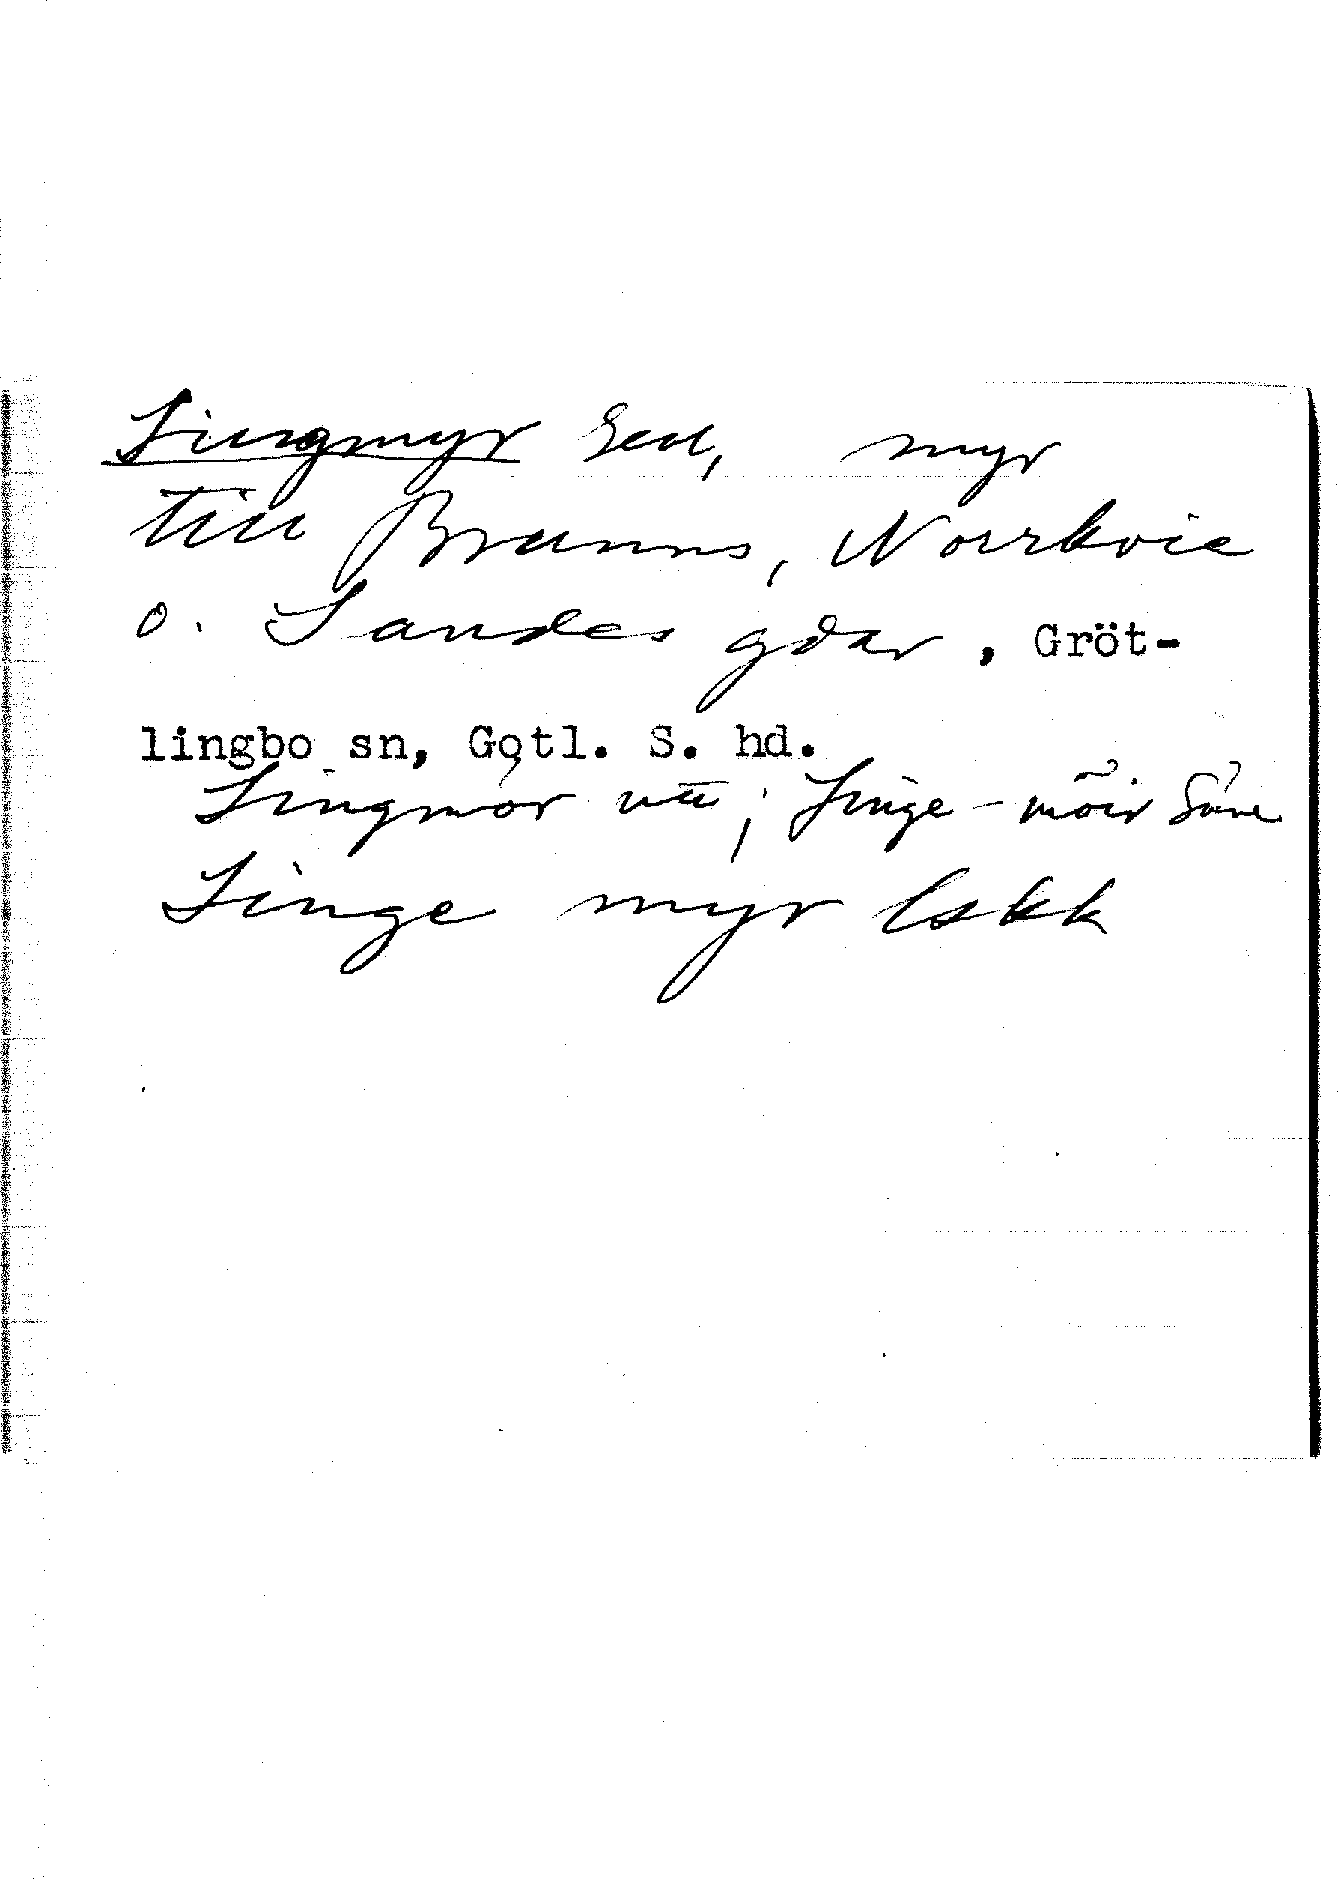 Lingmyr Ecd, myr
till Brunns, Norrkvie
o. Sandes gdar, Gröt-
lingbo sn, Gotl. S. hd.
Lingmor ; Linge-möir Säve
Linge myr lskk